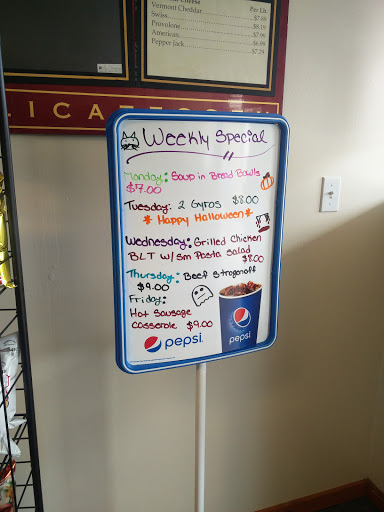 Per Lb.
Vermont Cheddar
$7.89
Swiss
Provolene
American
$6.99
Pepper Jack
$7.29
LICATESSEN
Weekly Special
Monday: Soup in Bread Bowls
$7.00
Tuesday: 2 Gyros $8.00
# Happy Halloween #
Wednesday: Grilled Chicken
BLT w/ Sm Pasta Salad
$8.00
Thursday: Beef Stroganoff
$9.00
Friday:
Hot Sausage
Casserole $9.00
pepsi
pepsi